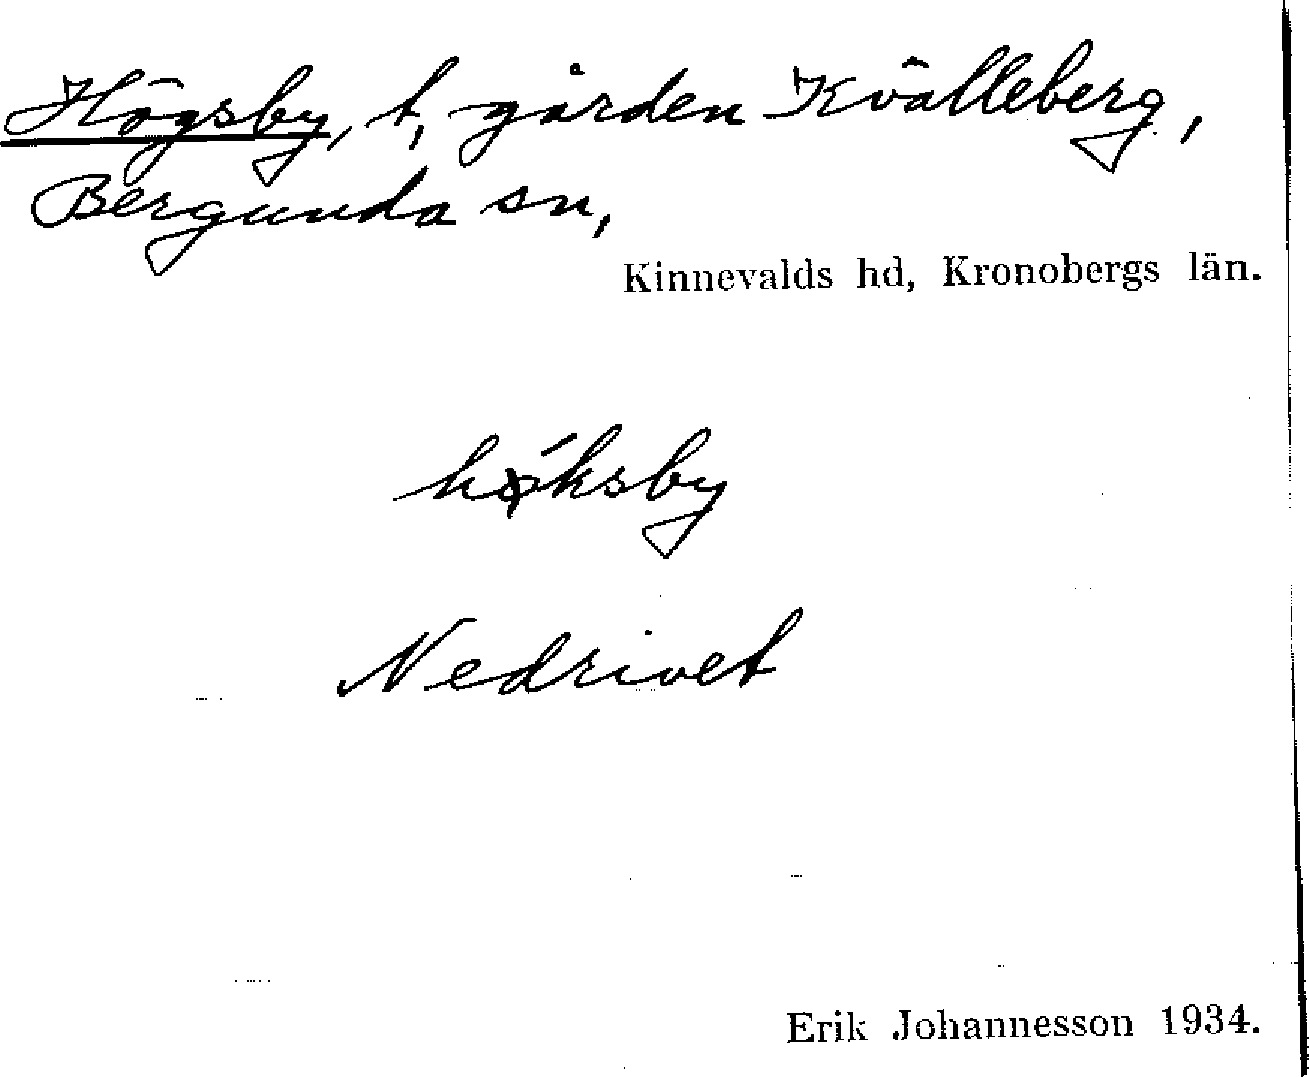 Högsby, t, gården Kvälleberg,
Bergunda sn,
Kinnevalds hd, Kronobergs län.
hǿksby
Nedrivet
Erik Johannesson 1934.